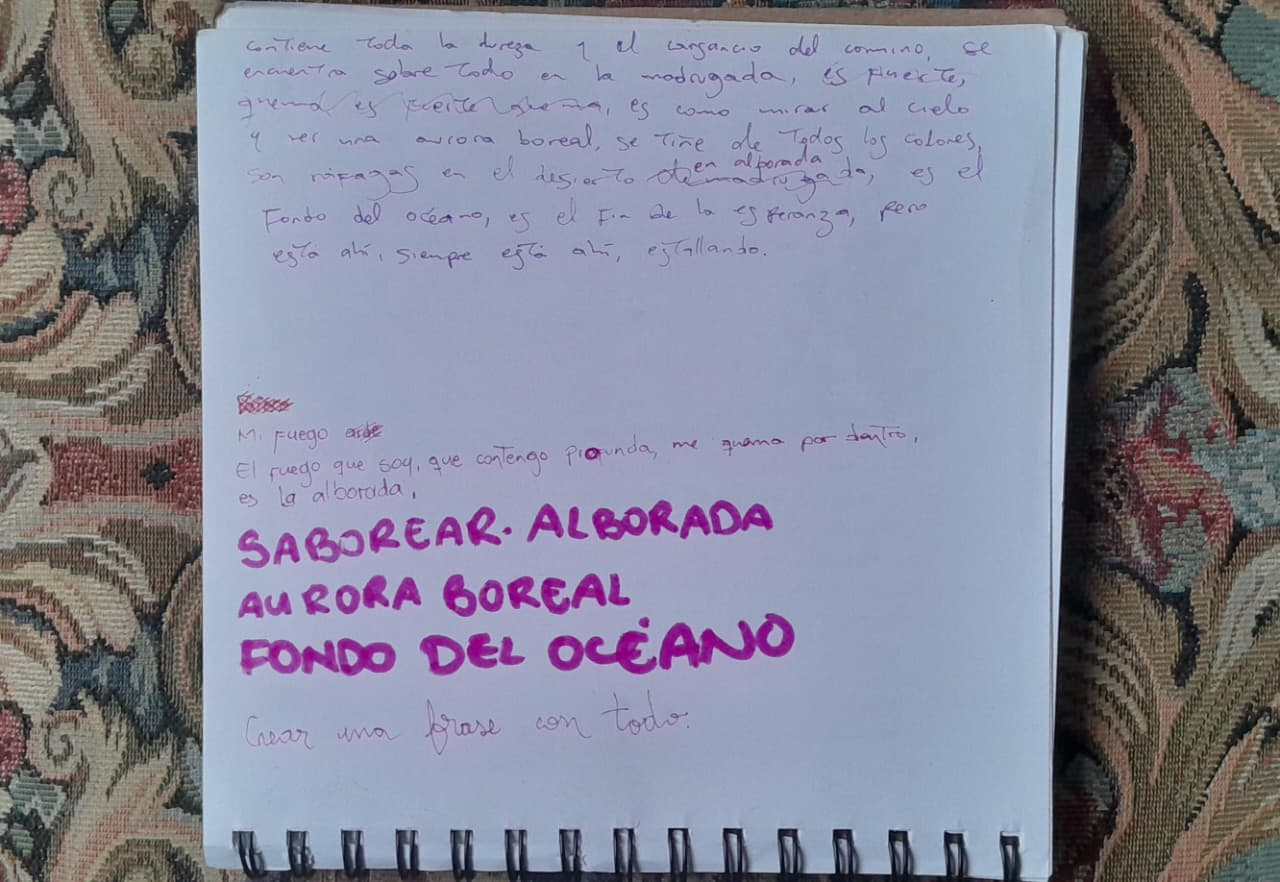 contiene toda la dureza y el cansancio del camino, se
encuentra sobre todo en la madrugada, es fuerte,
quema es fuerte quema, es como mirar al cielo
y ver una aurora boreal, se tiñe de todos los colores,
son ráfagas en el desierto de madrugada en alborada, es el
Fondo del océano, es el fin de la esperanza, pero
está ahí, siempre está ahí, estallando.
Mi fuego arde
El fuego que soy, que contengo profunda, me quema por dentro,
es la alborada,
SABOREAR. ALBORADA
AURORA BOREAL
FONDO DEL OCÉANO
Crear una frase con todo.